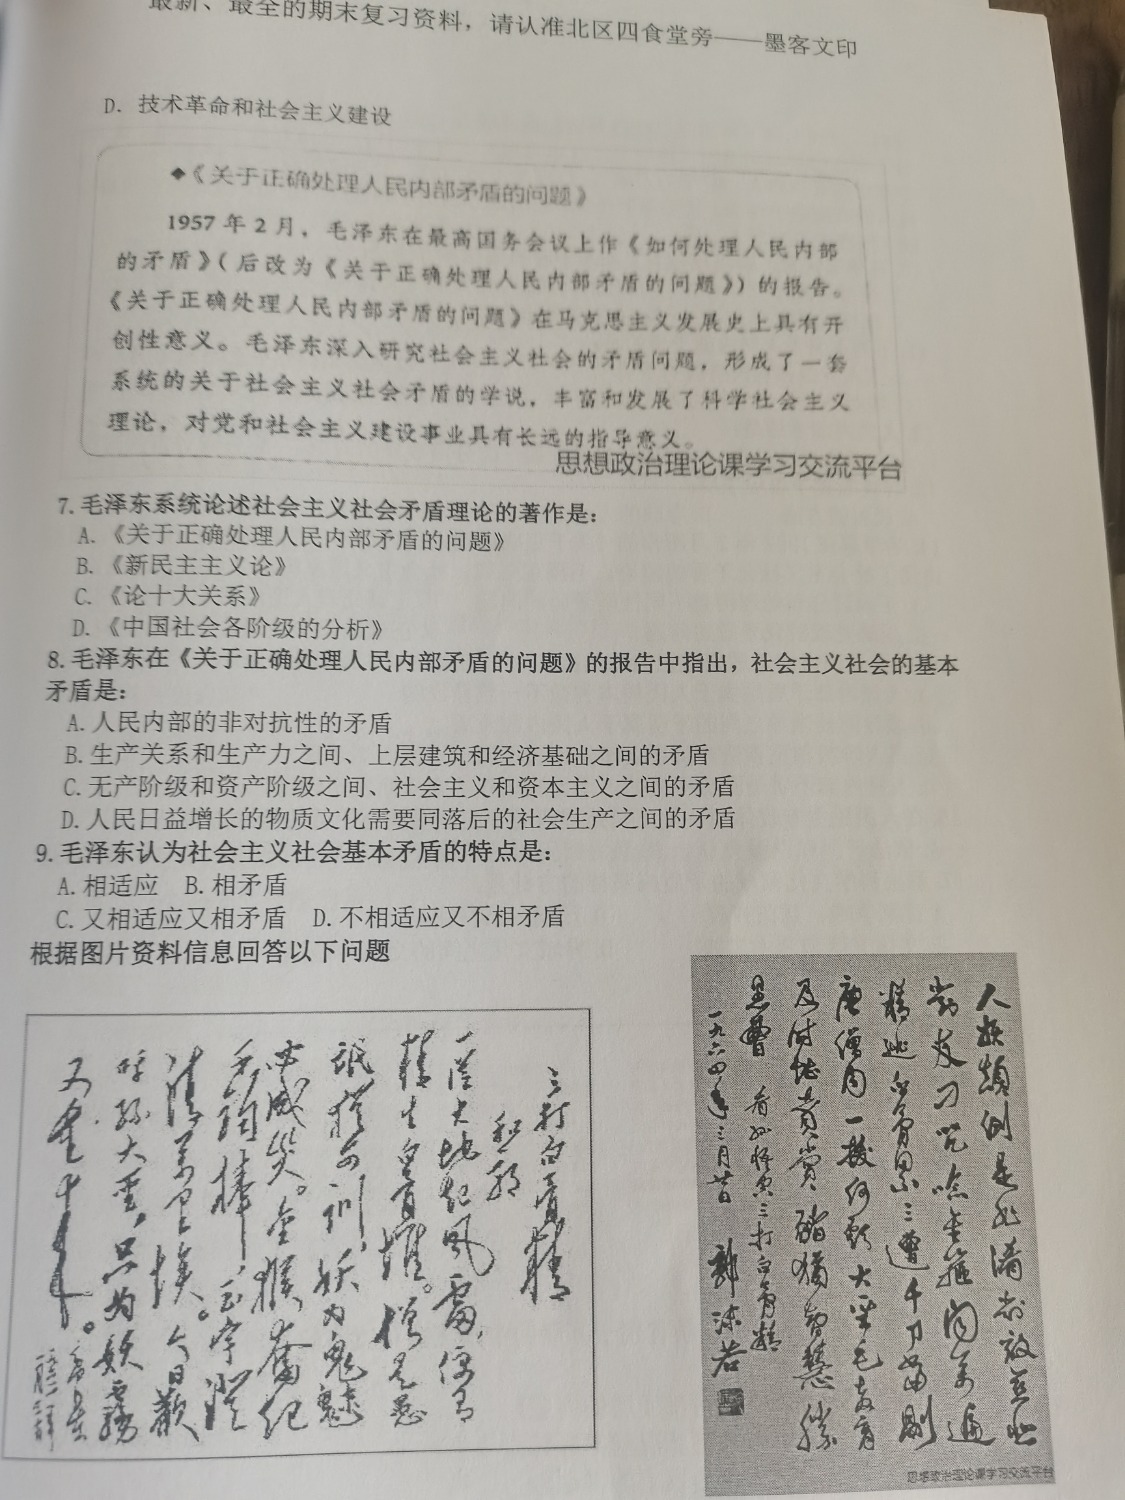 最新、最全的期末复习资料，请认准北区四食堂旁——墨客文印
D. 技术革命和社会主义建设
◆《关于正确处理人民内部矛盾的问题》
1957 年 2 月，毛泽东在最高国务会议上作《如何处理人民内部
的矛盾》（后改为《关于正确处理人民内部矛盾的问题》）的报告。
《关于正确处理人民内部矛盾的问题》在马克思主义发展史上具有开
创性意义。毛泽东深入研究社会主义社会的矛盾问题，形成了一套
系统的关于社会主义社会矛盾的学说，丰富和发展了科学社会主义
理论，对党和社会主义建设事业具有长远的指导意义。
思想政治理论课学习交流平台
7. 毛泽东系统论述社会主义社会矛盾理论的著作是：
A. 《关于正确处理人民内部矛盾的问题》
B. 《新民主主义论》
C. 《论十大关系》
D. 《中国社会各阶级的分析》
8. 毛泽东在《关于正确处理人民内部矛盾的问题》的报告中指出，社会主义社会的基本
矛盾是：
A. 人民内部的非对抗性的矛盾
B. 生产关系和生产力之间、上层建筑和经济基础之间的矛盾
C. 无产阶级和资产阶级之间、社会主义和资本主义之间的矛盾
D. 人民日益增长的物质文化需要同落后的社会生产之间的矛盾
9. 毛泽东认为社会主义社会基本矛盾的特点是：
A. 相适应 B. 相矛盾
C. 又相适应又相矛盾 D. 不相适应又不相矛盾
根据图片资料信息回答以下问题
三打白骨精
和郭
一从大地起风雷，便有
精生白骨堆。僧是愚
氓犹可训，妖为鬼魅
必成灾。金猴奋起
千钧棒，玉宇澄
清万里埃。今日欢
呼孙大圣，只为妖雾
又重来。
人妖颠倒是非淆对敌慈悲
对友刁咒念金箍闻万遍
精逃白骨累三遭千刀当剐
唐僧肉一拔何亏大圣毛教育
及时堪赞赏猪犹智慧胜
愚曹 看孙悟空三打白骨精
一九六四年三月廿日 郭沫若
思想政治理论课学习交流平台